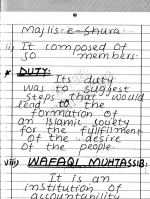 Majlis-e-Shura:
ii) It composed of
50 members.
* DUTY:
Its duty
was to suggest
steps that would
lead to the
formation of
an Islamic society
for the fullfilment
of the desire
of the people.
viii) WAFAQI MUHTASSIB:
It is an
institution of
accountability